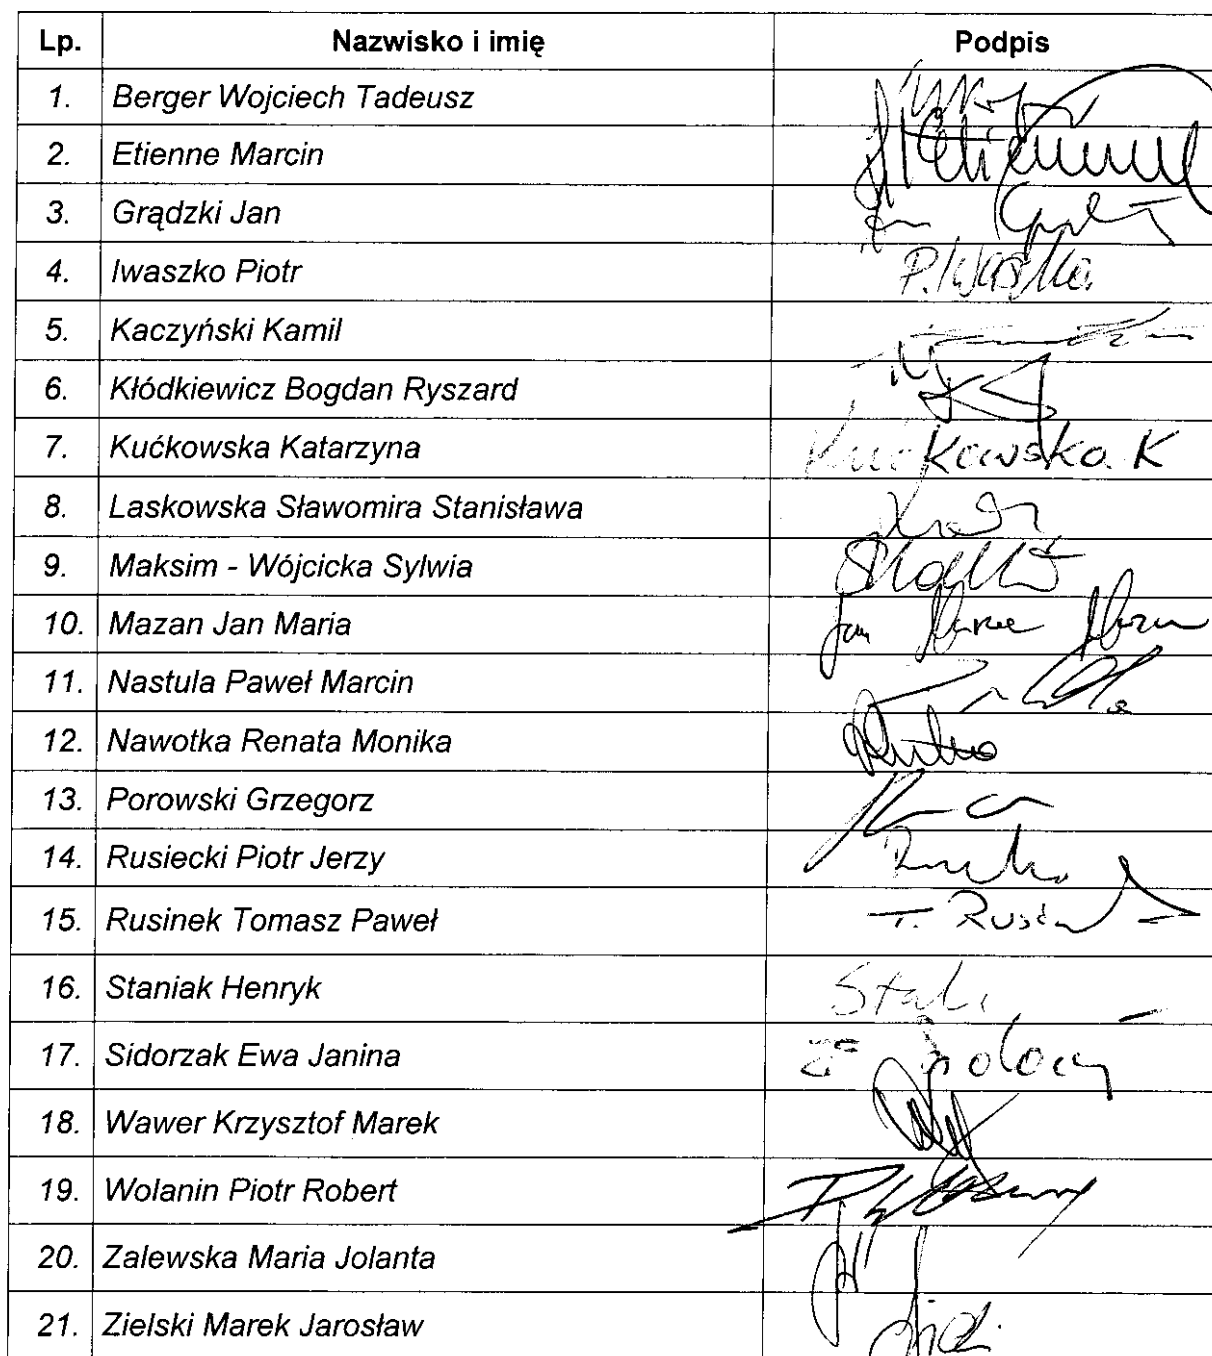 Lp. Nazwisko i imię Podpis
1. Berger Wojciech Tadeusz
2. Etienne Marcin
3. Grądzki Jan
4. Iwaszko Piotr P. Iwaszko
5. Kaczyński Kamil
6. Kłódkiewicz Bogdan Ryszard
7. Kućkowska Katarzyna Kućkowska K
8. Laskowska Sławomira Stanisława
9. Maksim - Wójcicka Sylwia
10. Mazan Jan Maria Jan Maria Mazan
11. Nastula Paweł Marcin
12. Nawotka Renata Monika
13. Porowski Grzegorz
14. Rusiecki Piotr Jerzy
15. Rusinek Tomasz Paweł T. Rusinek
16. Staniak Henryk
17. Sidorzak Ewa Janina
18. Wawer Krzysztof Marek
19. Wolanin Piotr Robert
20. Zalewska Maria Jolanta
21. Zielski Marek Jarosław